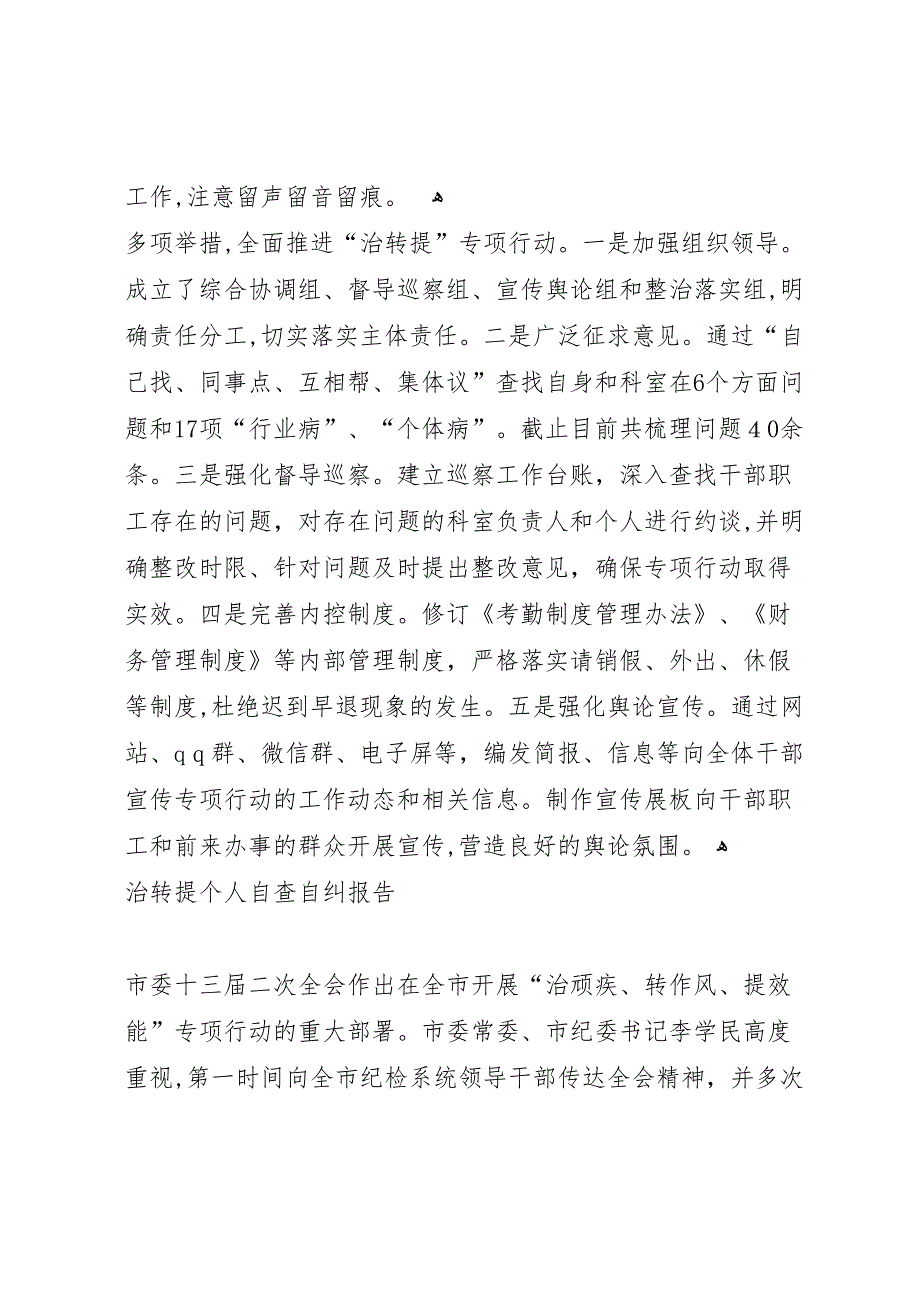 工作,注意留声留音留痕。 ﻫ
多项举措,全面推进“治转提”专项行动。一是加强组织领导。
成立了综合协调组、督导巡察组、宣传舆论组和整治落实组,明
确责任分工,切实落实主体责任。二是广泛征求意见。通过“自
己找、同事点、互相帮、集体议”查找自身和科室在6个方面问
题和17项“行业病”、“个体病”。截止目前共梳理问题４0余
条。三是强化督导巡察。建立巡察工作台账，深入查找干部职
工存在的问题，对存在问题的科室负责人和个人进行约谈,并明
确整改时限、针对问题及时提出整改意见，确保专项行动取得
实效。四是完善内控制度。修订《考勤制度管理办法》、《财
务管理制度》等内部管理制度，严格落实请销假、外出、休假
等制度,杜绝迟到早退现象的发生。五是强化舆论宣传。通过网
站、qq群、微信群、电子屏等，编发简报、信息等向全体干部
宣传专项行动的工作动态和相关信息。制作宣传展板向干部职
工和前来办事的群众开展宣传,营造良好的舆论氛围。 ﻫ
治转提个人自查自纠报告
市委十三届二次全会作出在全市开展“治顽疾、转作风、提效
能”专项行动的重大部署。市委常委、市纪委书记李学民高度
重视,第一时间向全市纪检系统领导干部传达全会精神，并多次